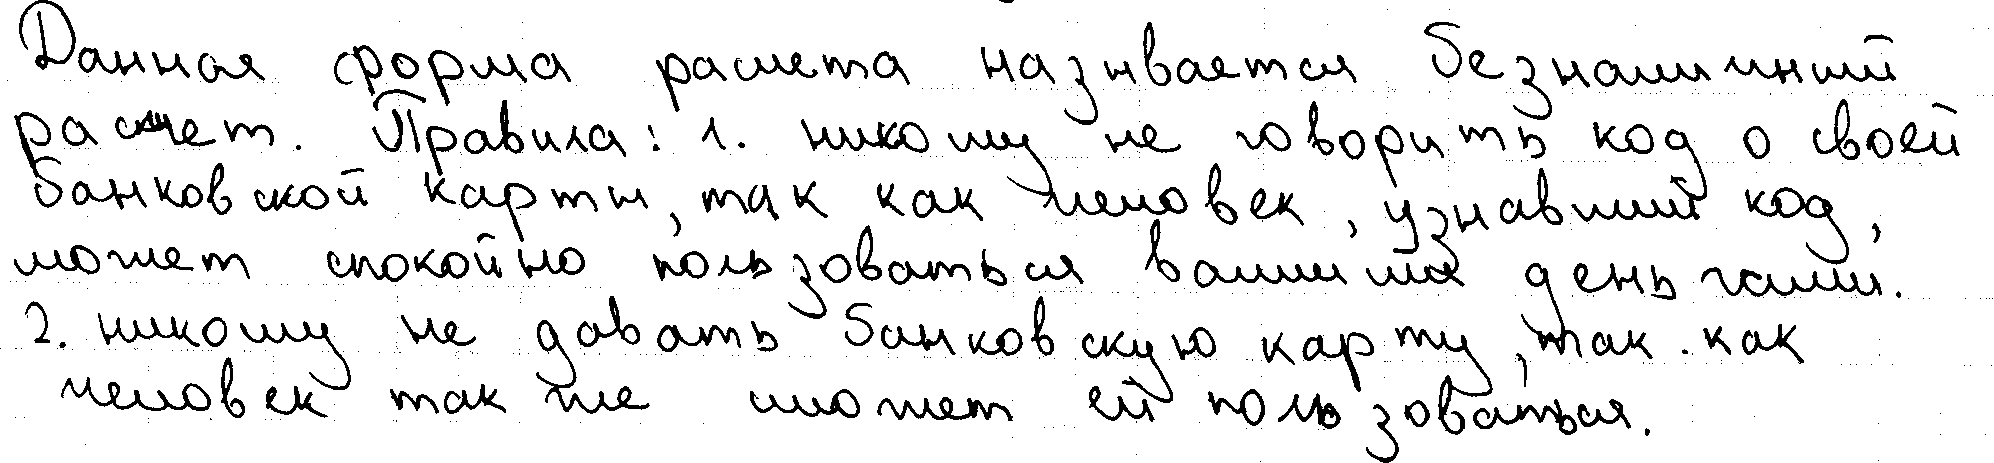 Данная форма расчета называется безналичный
расчет. Правила: 1. никому не говорить код о своей
банковской карты, так как человек, узнавший код,
может спокойно пользоваться вашими деньгами.
2. никому не давать банковскую карту, так как
человек так же сможет ей пользоваться.